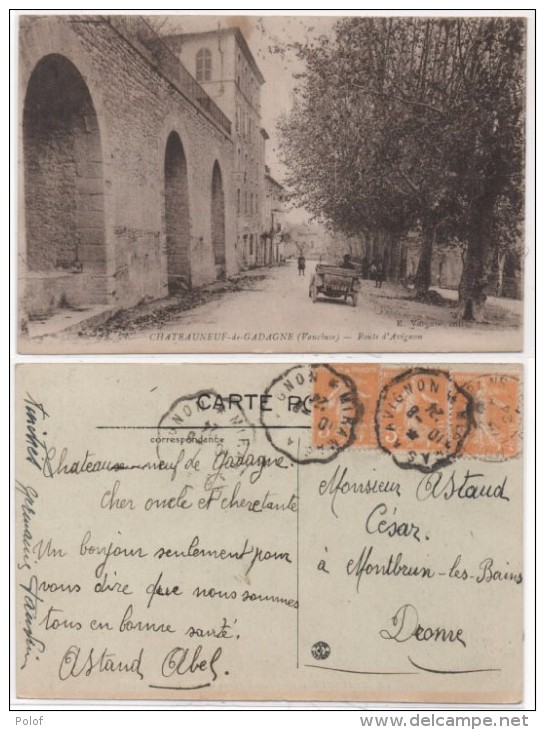 CHATEAUNEUF-de-GADAGNE (Vaucluse) — Route d'Avignon
CARTE PO
correspondance
Chateau-neuf de Gadagne.
Cher oncle et chere tante
Un bonjour seulement pour
vous dire que nous sommes
tous en bonne santé.
Astaud Abel.
Monsieur Astaud
César.
à Montbrun-les-Bains
Drome
AVIGNON
Polof
www.delcampe.net